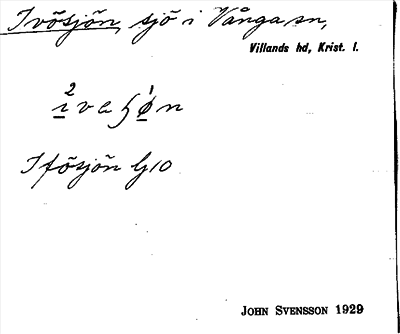 Ivösjön, sjö i Vånga sn,
Villands hd, Krist. l.
Ifösjön G10
JOHN SVENSSON 1929